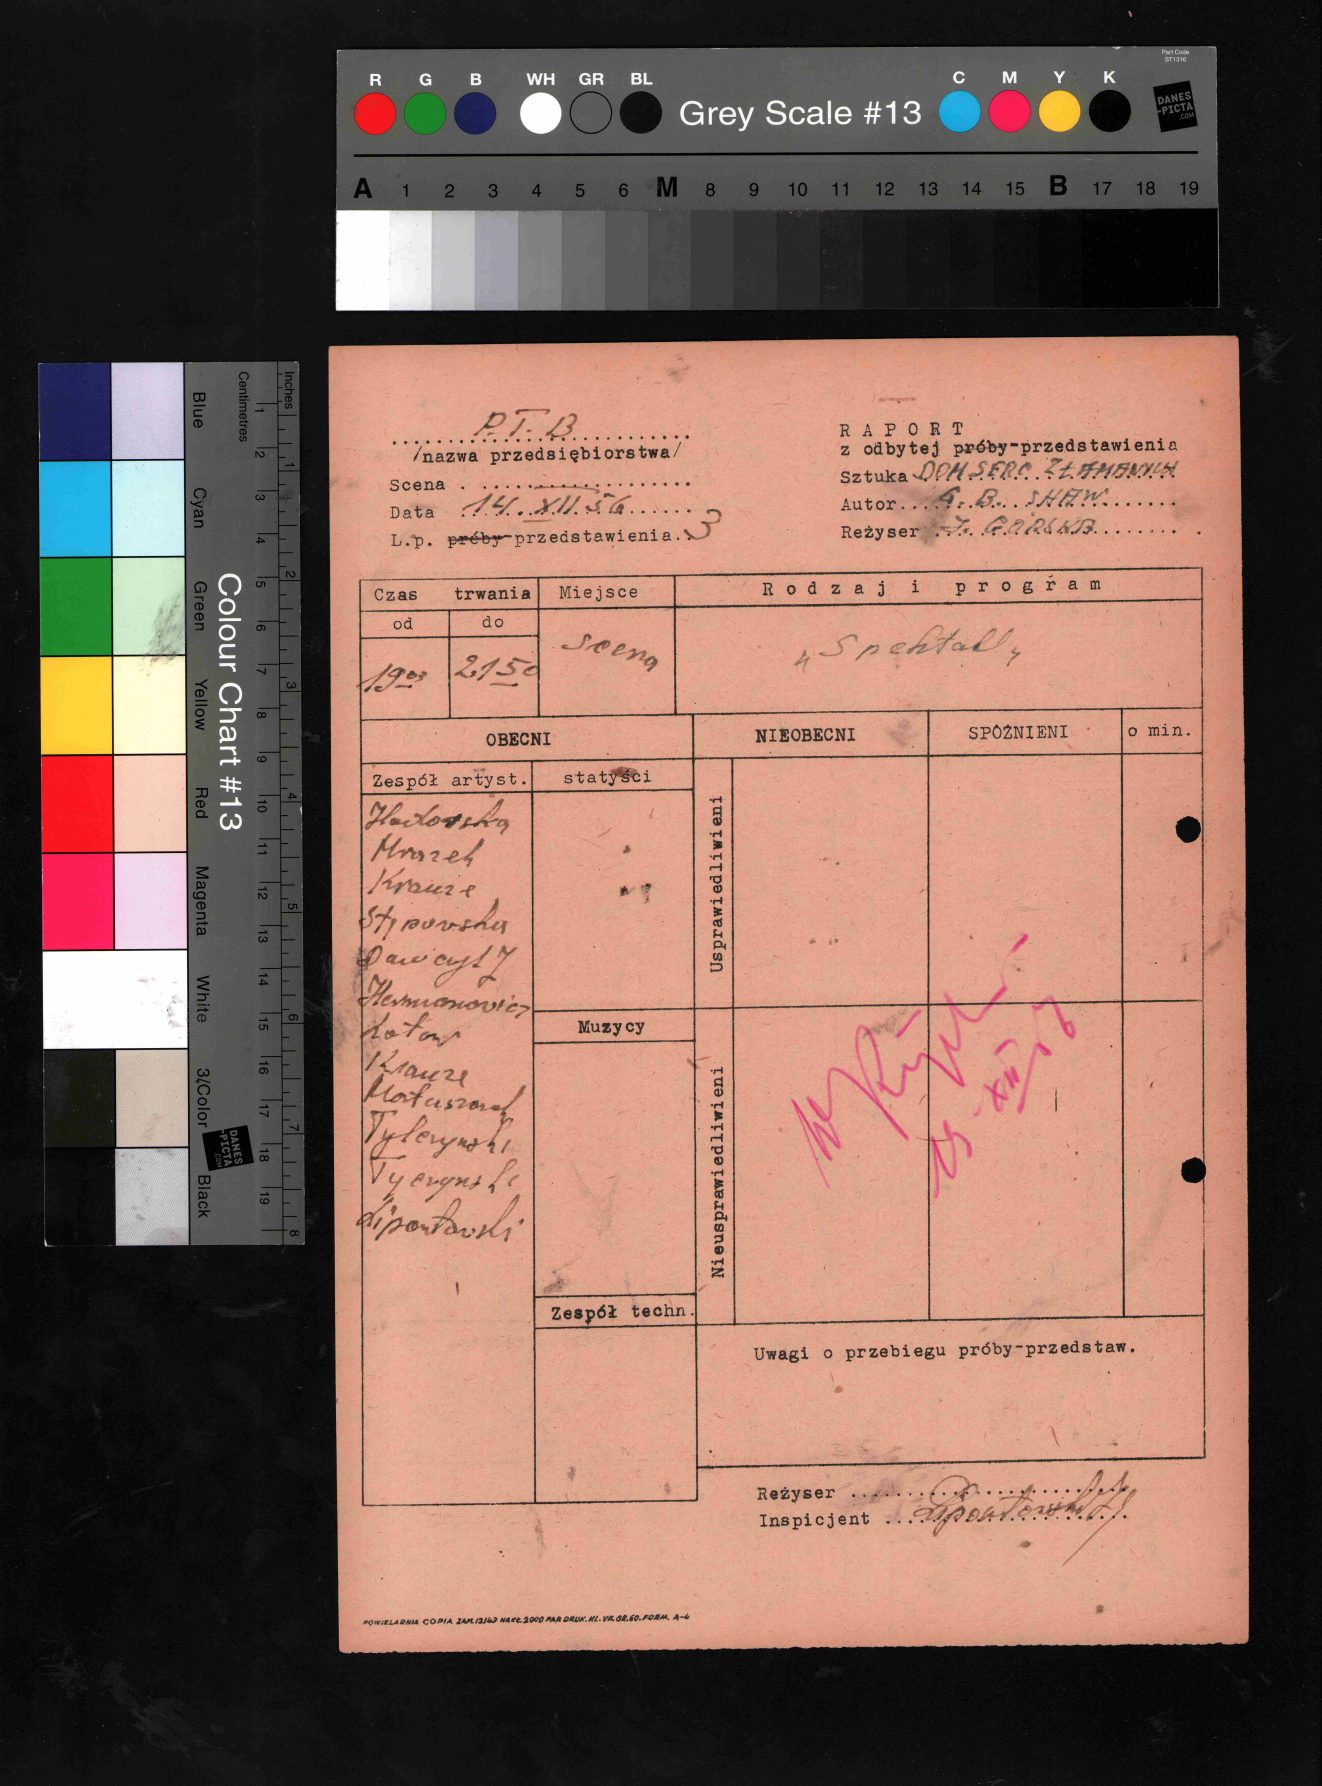 Part Code
ST1316
R G B WH GR BL Grey Scale #13 C M Y K
DANES
-PICTA
.COM
A 1 2 3 4 5 6 M 8 9 10 11 12 13 14 15 B 17 18 19
Inches
Centimetres
1 2 3 4 5 6 7 8 9 10 11 12 13 14 15 16 17 18 19
1 2 3 4 5 6 7 8
Colour Chart #13
Blue Cyan Green Yellow Red Magenta White 3/Color Black
DANES
-PICTA
.COM
P.T.B
/nazwa przedsiębiorstwa/
Scena
Data 14. XII 56
L.p. próby-przedstawienia. 3
RAPORT
z odbytej próby-przedstawienia
Sztuka DOM SERC ZŁAMANYCH
Autor G. B. SHAW
Reżyser J. GÓRSKA
Czas trwania Miejsce Rodzaj i program
od do
19 05 21 50 scena „Spektakl„
OBECNI NIEOBECNI SPÓŹNIENI o min.
Zespół artyst. statyści
Mrozek
Krauze
Hermanowicz
Krauze
Tyczyński
Lipontowski
Usprawiedliwieni
Muzycy
Nieusprawiedliwieni
15 XII 56
Zespół techn.
Uwagi o przebiegu próby-przedstaw.
Reżyser
Inspicjent
POWIELARNIA COPIA ZAM. 12163 NAKŁ. 2000 PAP. DRUK. KL. VK. GR. 60. FORM. A-4